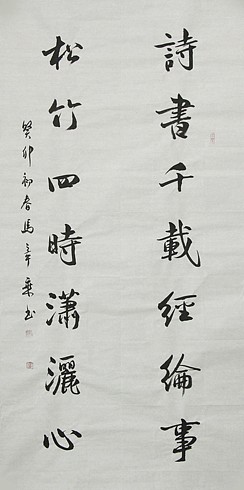 詩書千載經綸事
松竹四時瀟灑心
癸卯初春馬